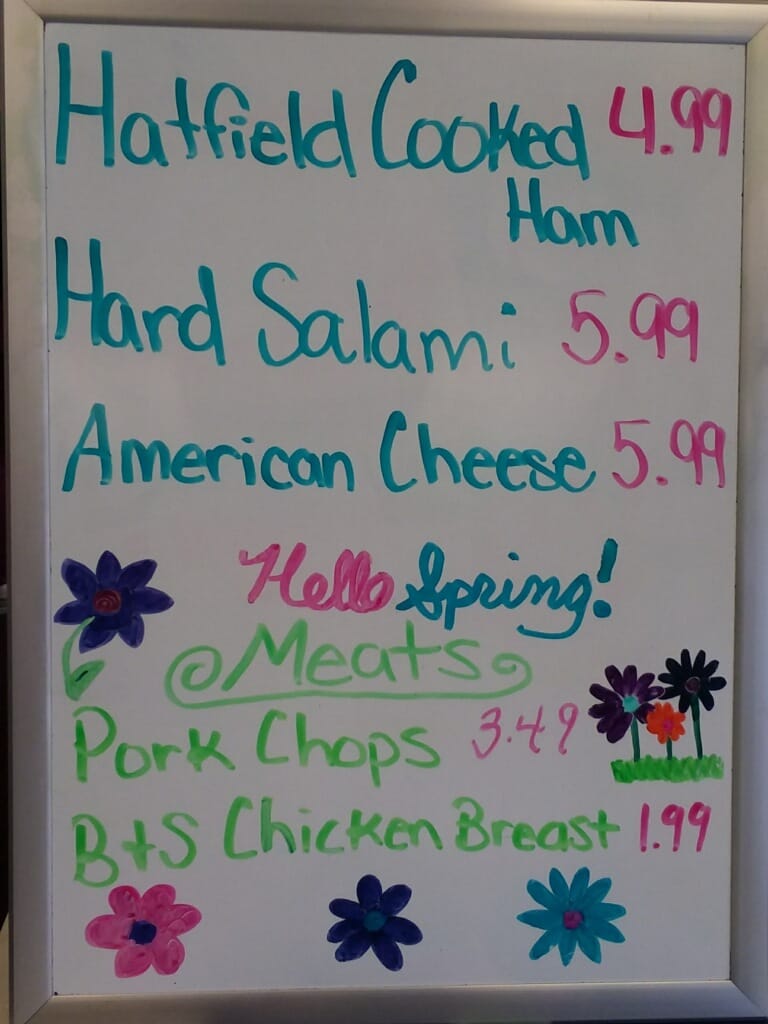 Hatfield Cooked 4.99
Ham
Hard Salami 5.99
American Cheese 5.99
Hello Spring!
Meats
Pork Chops 3.49
B+S Chicken Breast 1.99